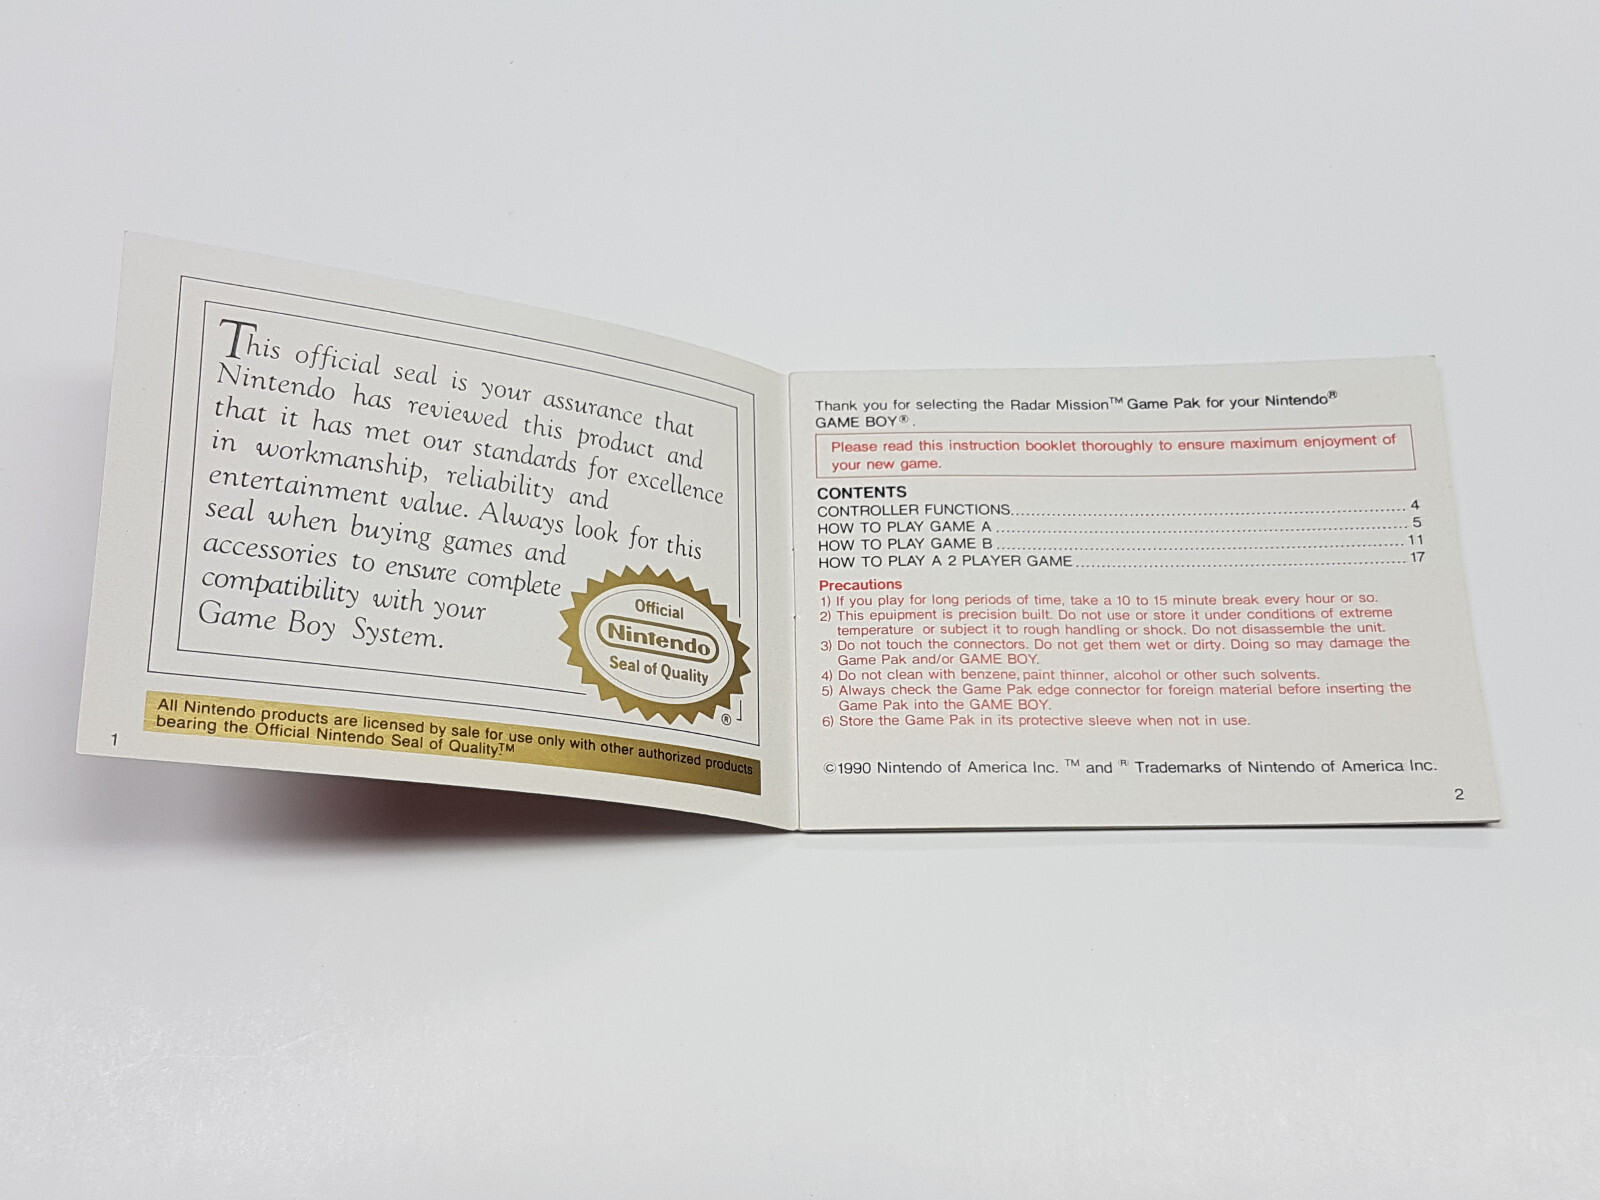 This official seal is your assurance that
Nintendo has reviewed this product and
that it has met our standards for excellence
in workmanship, reliability and
entertainment value. Always look for this
seal when buying games and
accessories to ensure complete
compatibility with your
Game Boy System.
Official
Nintendo
Seal of Quality
®
All Nintendo products are licensed by sale for use only with other authorized products
bearing the Official Nintendo Seal of Quality.™
1
Thank you for selecting the Radar Mission™ Game Pak for your Nintendo®
GAME BOY®.
Please read this instruction booklet thoroughly to ensure maximum enjoyment of
your new game.
CONTENTS
CONTROLLER FUNCTIONS 4
HOW TO PLAY GAME A 5
HOW TO PLAY GAME B 11
HOW TO PLAY A 2 PLAYER GAME 17
Precautions
1) If you play for long periods of time, take a 10 to 15 minute break every hour or so.
2) This equipment is precision built. Do not use or store it under conditions of extreme
temperature or subject it to rough handling or shock. Do not disassemble the unit.
3) Do not touch the connectors. Do not get them wet or dirty. Doing so may damage the
Game Pak and/or GAME BOY.
4) Do not clean with benzene, paint thinner, alcohol or other such solvents.
5) Always check the Game Pak edge connector for foreign material before inserting the
Game Pak into the GAME BOY.
6) Store the Game Pak in its protective sleeve when not in use.
©1990 Nintendo of America Inc. ™ and ® Trademarks of Nintendo of America Inc.
2